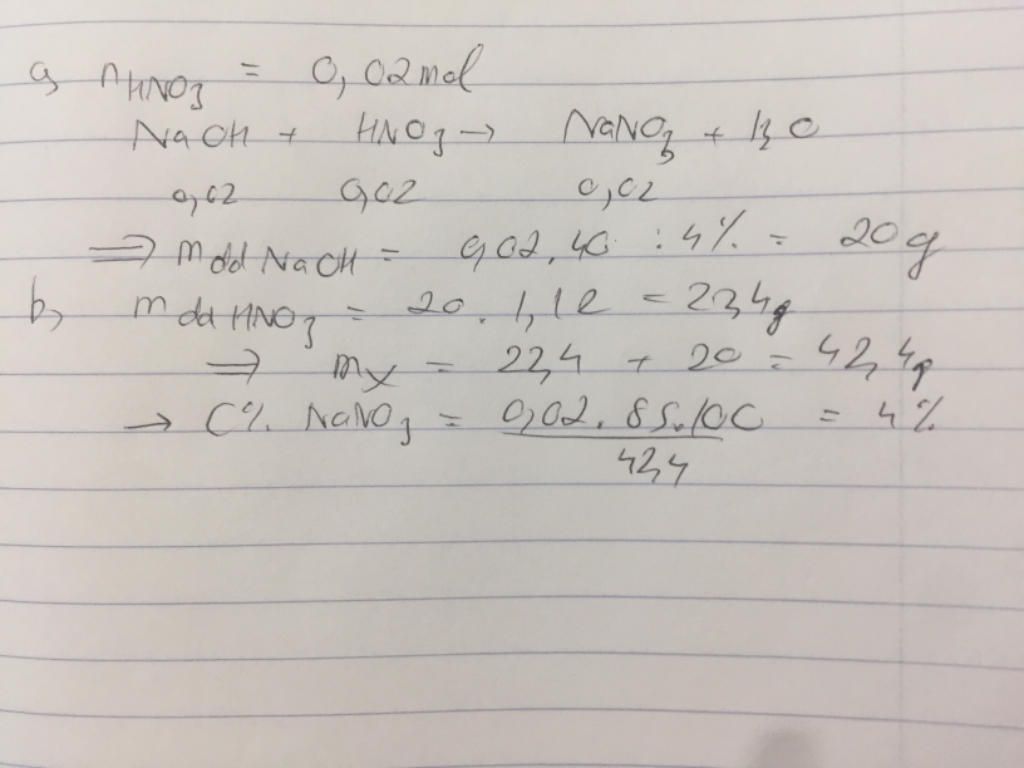 a, nHNO3 = 0,02mol
NaOH + HNO3 → NaNO3 + H2O
0,02 0,02 0,02
⇒ mdd NaOH = 0,02.40 : 4% = 20g
b, mdd HNO3 = 20.1,12 = 22,4g
⇒ mX = 22,4 + 20 = 42,4g
→ C% NaNO3 = 0,02.85.100 = 4%
42,4